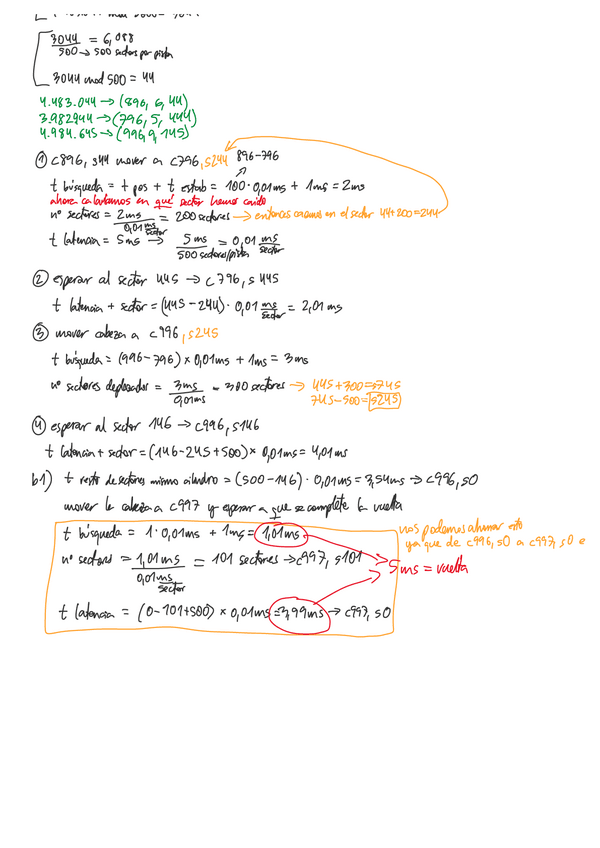 3044 = 6,088
500 → 500 sectores por pista
3044 mod 500 = 44
4.483.044 → (896, 6, 44)
3.982944 → (796, 5, 444)
4.984.645 → (996, 9, 145)
① c896, s44 mover a c796, s244 896-796
t búsqueda = t pos + t estab = 100 · 0,01ms + 1ms = 2ms
ahora calculamos en qué sector hemos caído
nº sectores = 2ms / 0,01 ms/sector = 200 sectores → entonces caemos en el sector 44+200=244
t latencia = 5ms → 5ms / 500 sectores/pista = 0,01 ms/sector
② esperar al sector 445 → c796, s445
t latencia + sector = (445 - 244) · 0,01 ms/sector = 2,01 ms
③ mover cabeza a c996, s245
t búsqueda = (996-796) × 0,01ms + 1ms = 3ms
nº sectores desplazados = 3ms / 0,01ms = 300 sectores → 445+300=745
745-500=s245
④ esperar al sector 146 → c996, s146
t latencia + sector = (146-245+500) × 0,01ms = 4,01ms
b1) t resto de sectores mismo cilindro = (500-146) · 0,01ms = 3,54ms → c996, s0
mover la cabeza a c997 y esperar a que se complete la vuelta
t búsqueda = 1 · 0,01ms + 1ms = 1,01ms
nos podemos ahorrar esto
ya que de c996, s0 a c997, s0 e
nº sectores = 1,01ms / 0,01ms/sector = 101 sectores → c997, s101
5ms = vuelta
t latencia = (0-101+500) × 0,01ms = 3,99ms → c997, s0